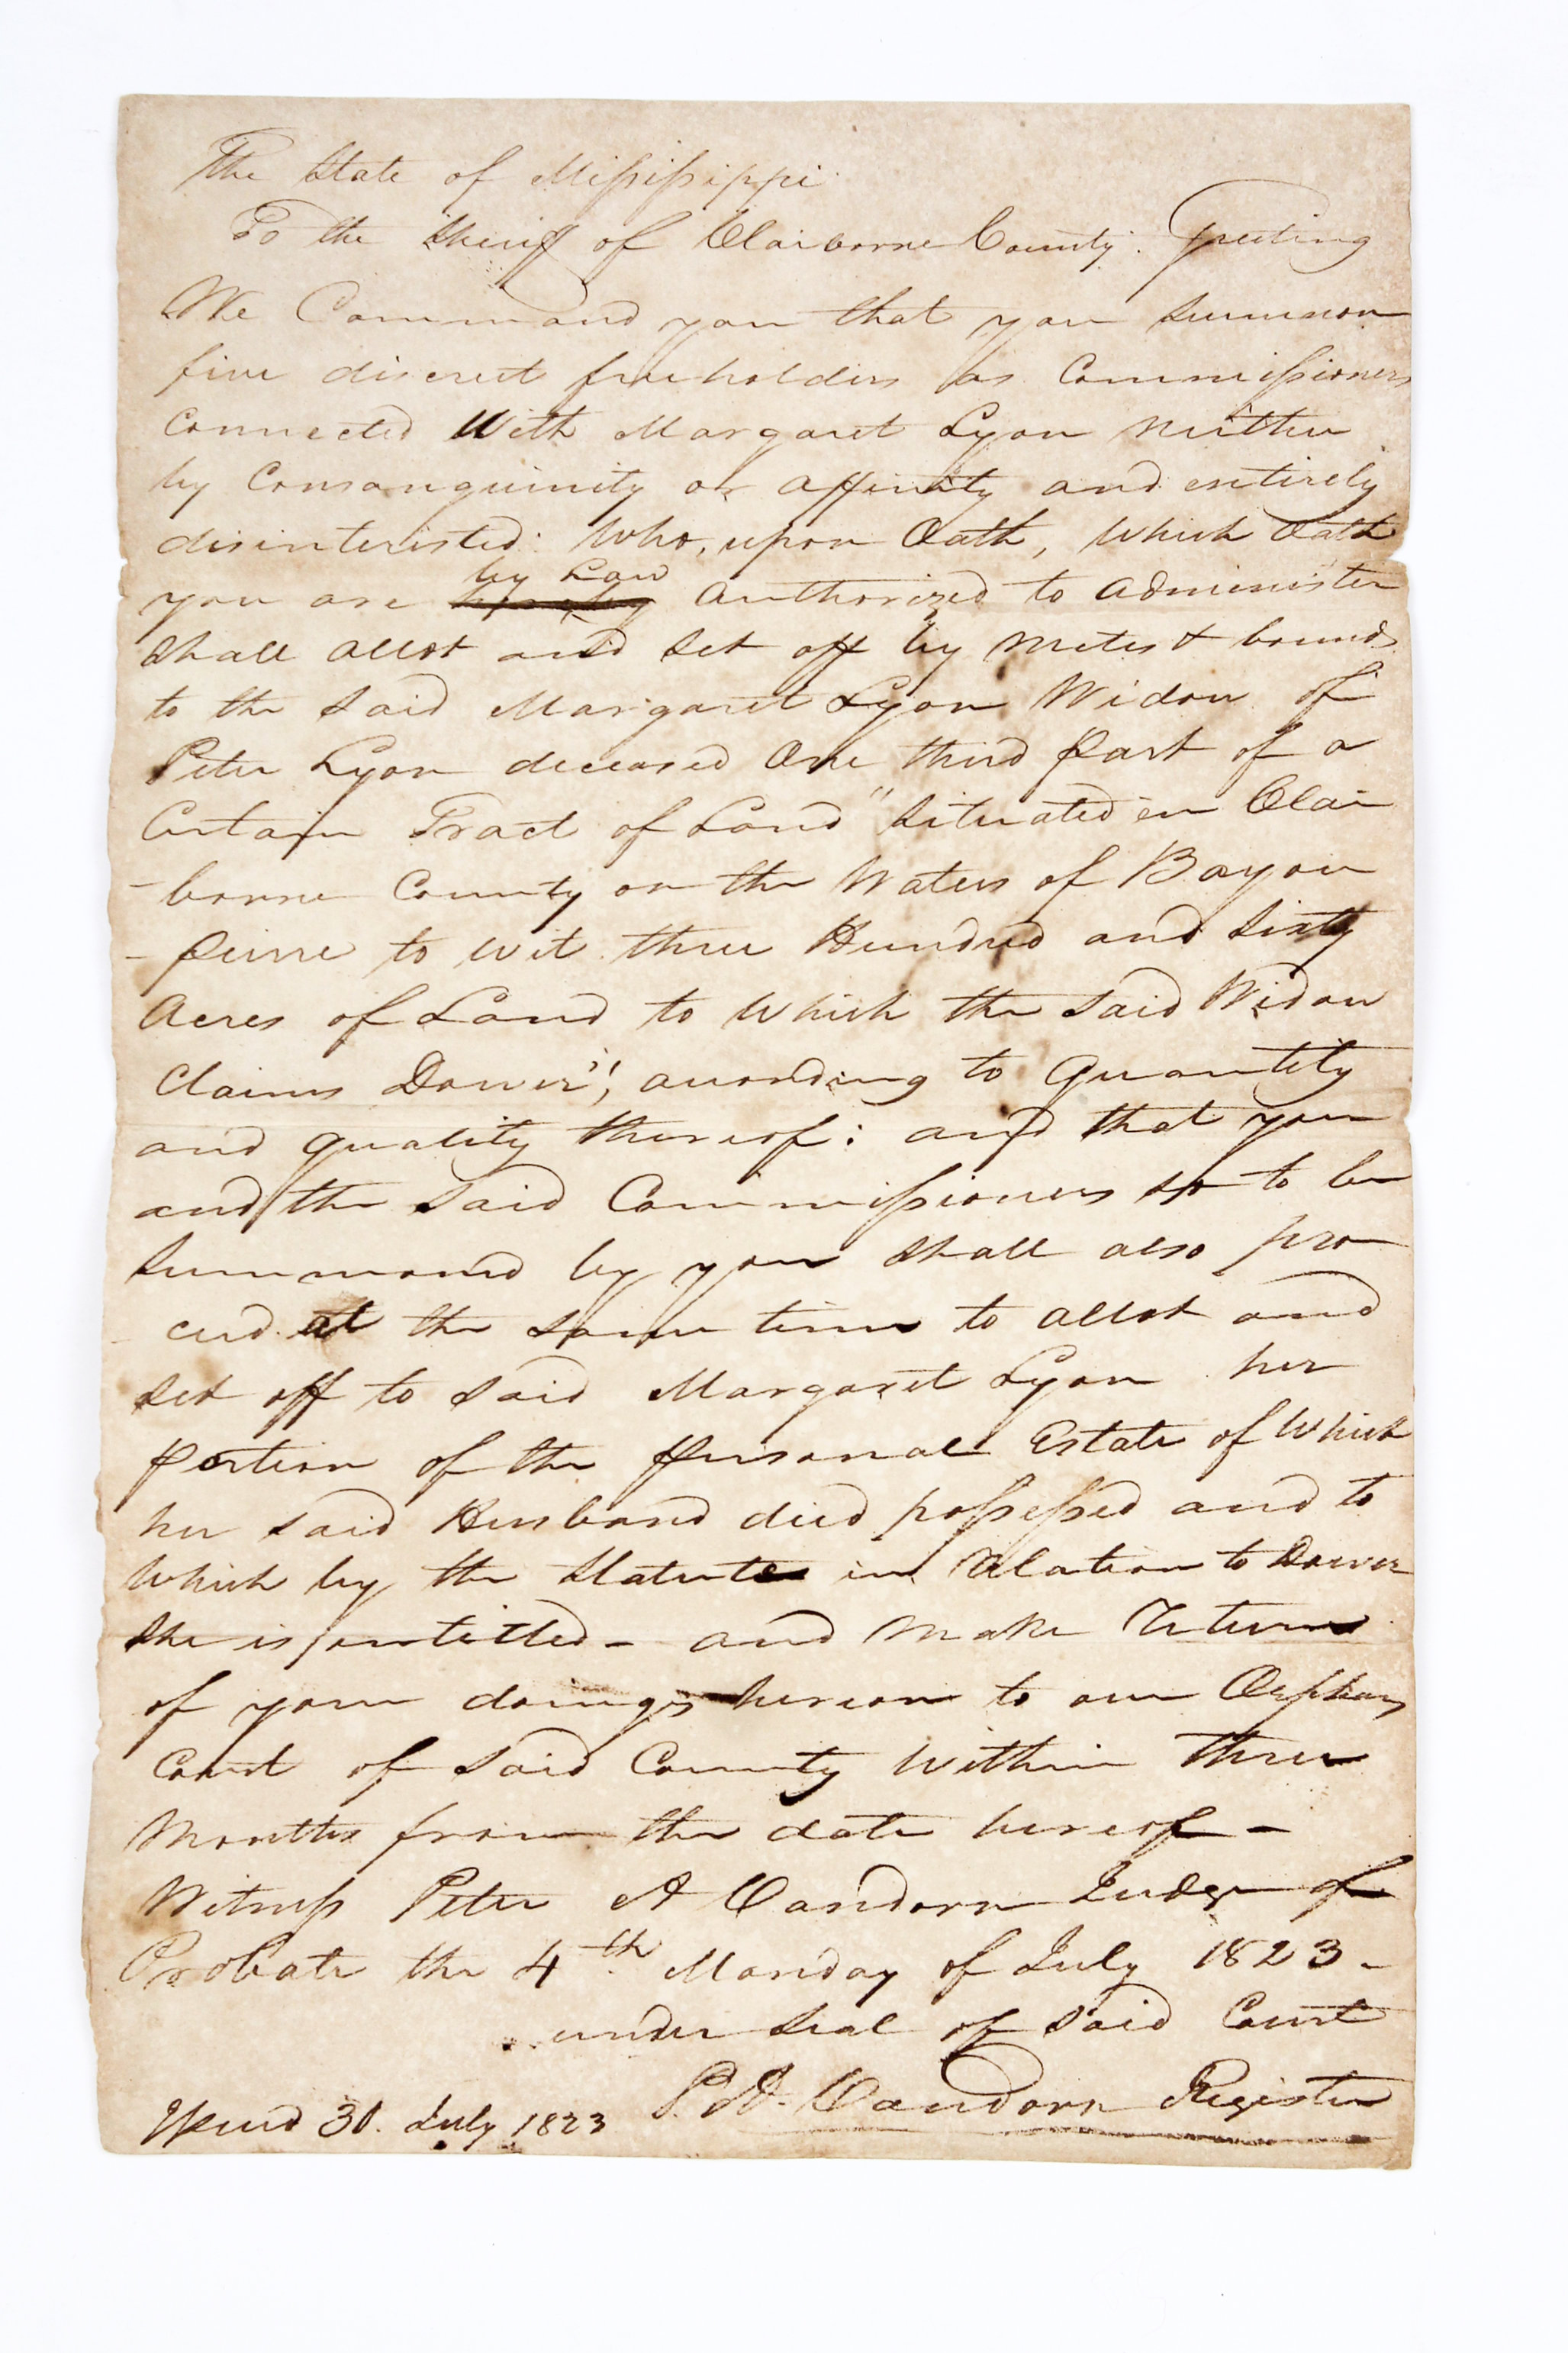 The State of Missisippi
To the Sheriff of Claiborne County. Greeting
We Command you that you Summon
five discreet freeholders as Commissioners
Connected With Margaret Lyon neither
by Consanguinity or affinity and entirely
disinterested: Who, upon Oath, Which Oath
by Law
you are hereby authorized to administer
Shall allot and Set off by metes & bounds
to the Said Margaret Lyon Widow of
Peter Lyon deceased One third part of a
Certain Tract of Land "Situated in Clai
-borne County on the Waters of Bayou
-peirre to wit three Hundred and Sixty
Acres of Land to Which the Said Widow
Claims Dower", according to Quantity
and quality thereof: and that you
and the Said Commissioners so to be
Summoned by you Shall also pro
-ceed at the Same time to allot and
Set off to Said Margaret Lyon her
portion of the personal Estate of Which
her said Husband died possessed and to
Which by the Statute in Relation to Dower
She is entitled - and make Return
of your doings hereon to our Orphans
Court of Said County Within three
Months from the date hereof -
Witness Peter A Vandorn Judge of
Probate the 4th Monday of July 1823 -
under Seal of Said Court
P. A. Vandorn Register
Issued 30. July 1823